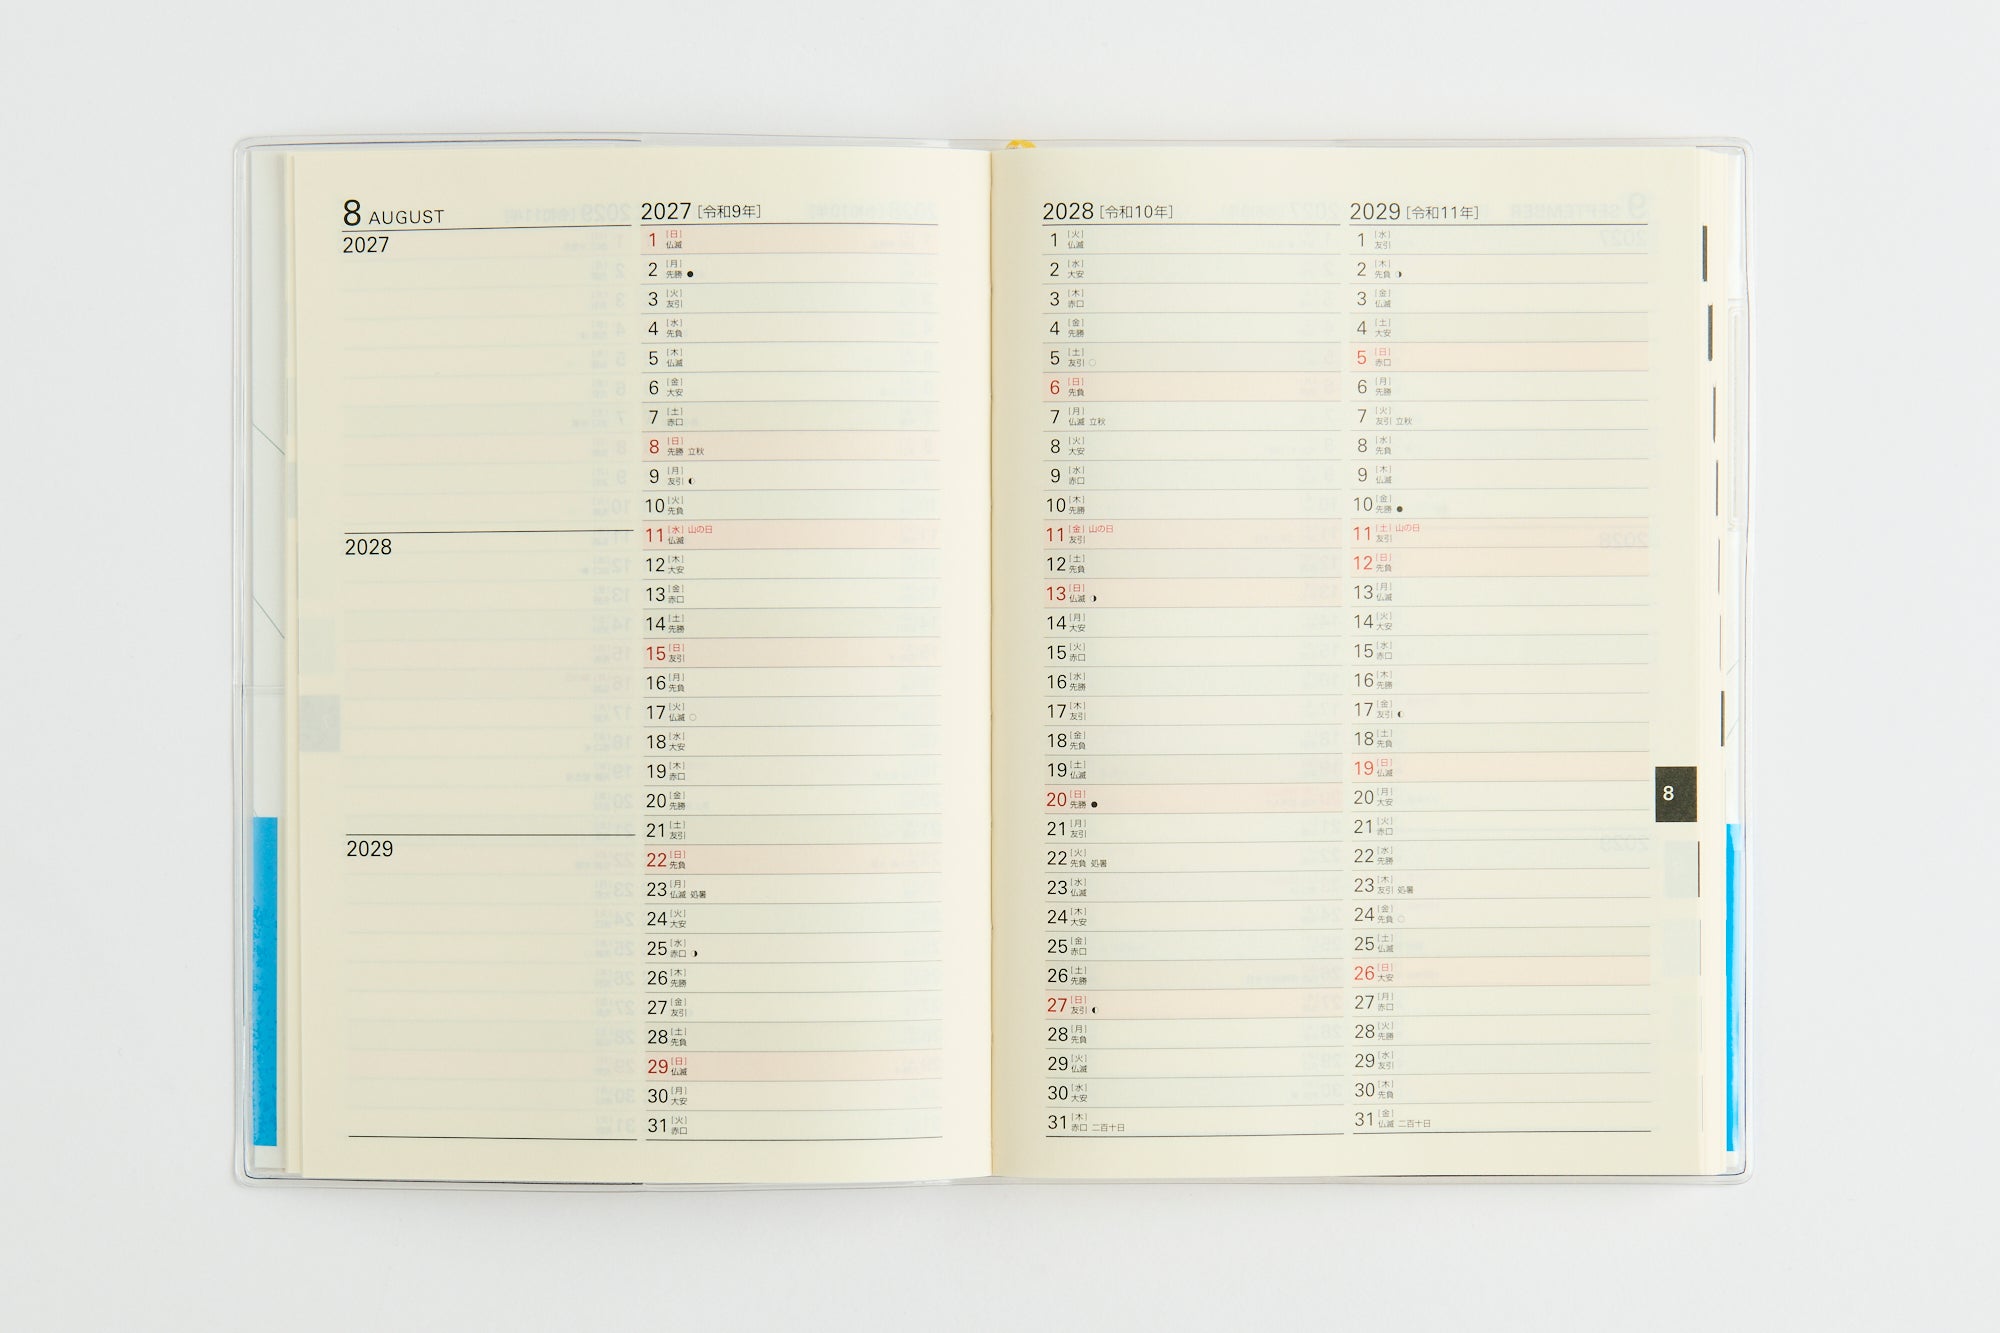 8 AUGUST
2027
2028
2029
2027 [令和9年]
1 [日]
仏滅
2 [月]
先勝 ●
3 [火]
友引
4 [水]
先負
5 [木]
仏滅
6 [金]
大安
7 [土]
赤口
8 [日]
先勝 立秋
9 [月]
友引 ◐
10 [火]
先負
11 [水] 山の日
仏滅
12 [木]
大安
13 [金]
赤口
14 [土]
先勝
15 [日]
友引
16 [月]
先負
17 [火]
仏滅 ○
18 [水]
大安
19 [木]
赤口
20 [金]
先勝
21 [土]
友引
22 [日]
先負
23 [月]
仏滅 処暑
24 [火]
大安
25 [水]
赤口 ◑
26 [木]
先勝
27 [金]
友引
28 [土]
先負
29 [日]
仏滅
30 [月]
大安
31 [火]
赤口
2028 [令和10年]
1 [火]
仏滅
2 [水]
大安
3 [木]
赤口
4 [金]
先勝
5 [土]
友引 ○
6 [日]
先負
7 [月]
仏滅 立秋
8 [火]
大安
9 [水]
赤口
10 [木]
先勝
11 [金] 山の日
友引
12 [土]
先負
13 [日]
仏滅 ◑
14 [月]
大安
15 [火]
赤口
16 [水]
先勝
17 [木]
友引
18 [金]
先負
19 [土]
仏滅
20 [日]
先勝 ●
21 [月]
友引
22 [火]
先負 処暑
23 [水]
仏滅
24 [木]
大安
25 [金]
赤口
26 [土]
先勝
27 [日]
友引 ◐
28 [月]
先負
29 [火]
仏滅
30 [水]
大安
31 [木]
赤口 二百十日
2029 [令和11年]
1 [水]
友引
2 [木]
先負 ◑
3 [金]
仏滅
4 [土]
大安
5 [日]
赤口
6 [月]
先勝
7 [火]
友引 立秋
8 [水]
先負
9 [木]
仏滅
10 [金]
先勝 ●
11 [土] 山の日
友引
12 [日]
先負
13 [月]
仏滅
14 [火]
大安
15 [水]
赤口
16 [木]
先勝
17 [金]
友引 ◐
18 [土]
先負
19 [日]
仏滅
20 [月]
大安
21 [火]
赤口
22 [水]
先勝
23 [木]
友引 処暑
24 [金]
先負 ○
25 [土]
仏滅
26 [日]
大安
27 [月]
赤口
28 [火]
先勝
29 [水]
友引
30 [木]
先負
31 [金]
仏滅 二百十日
8